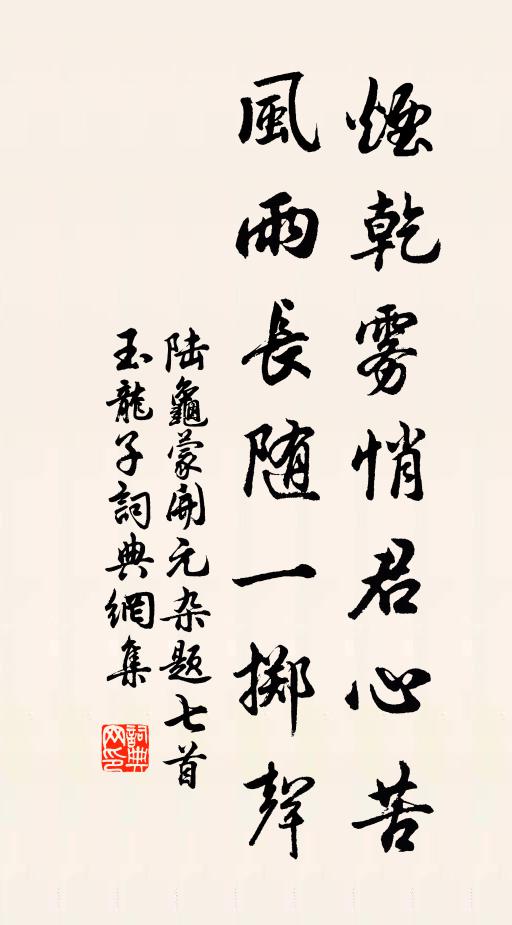 煙乾雾悄君心苦
風雨長随一擲聲
陆龜蒙開元杂题七首
玉龍子詞典網集
詞典網印